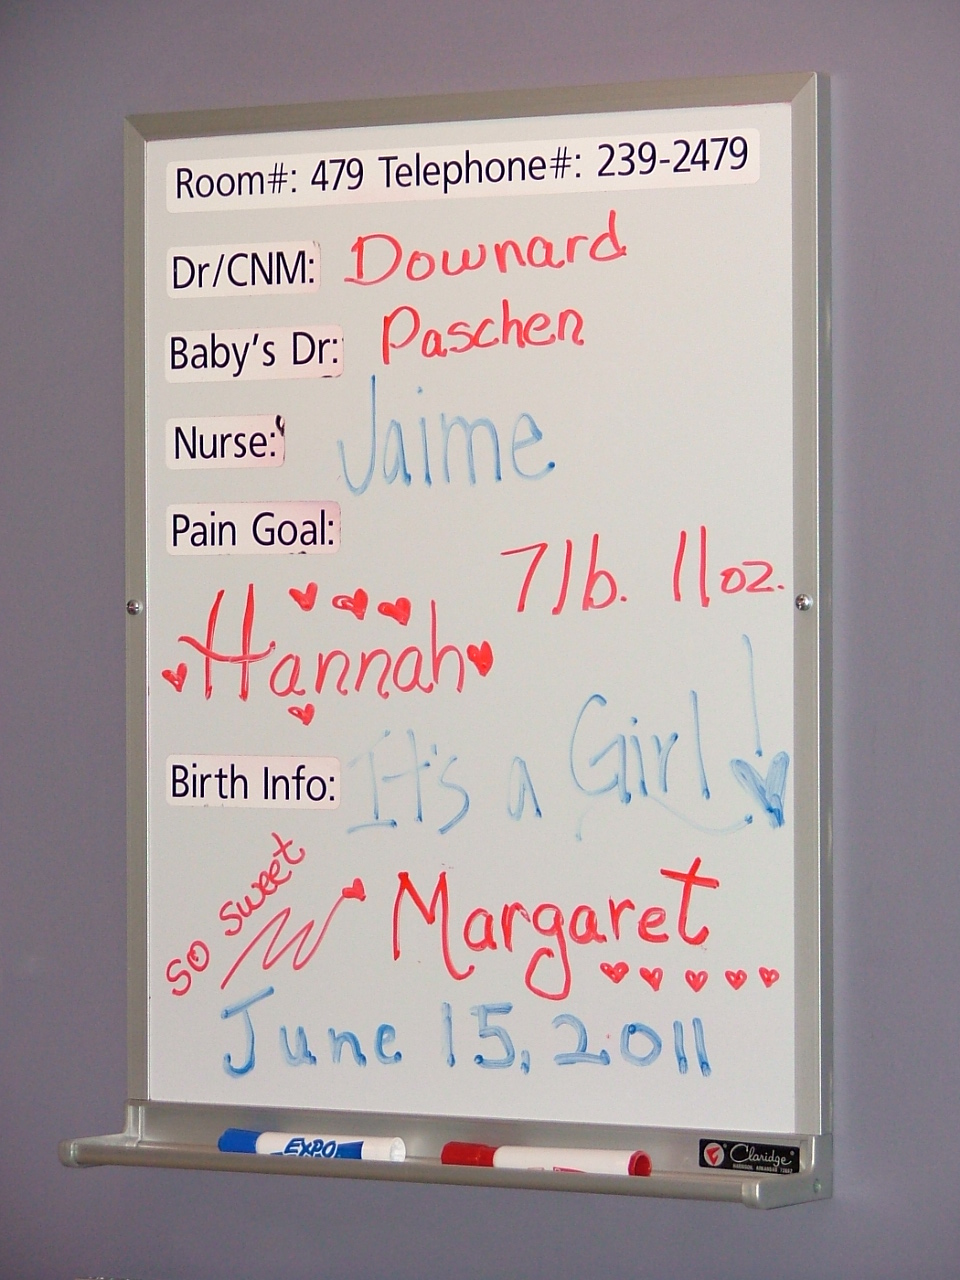 Room#: 479 Telephone#: 239-2479
Dr/CNM: Downard
Baby's Dr: Paschen
Nurse: Jaime
Pain Goal:
7 lb. 11 oz.
Hannah
Birth Info: It's a Girl!
so sweet
Margaret
June 15, 2011
EXPO
Claridge